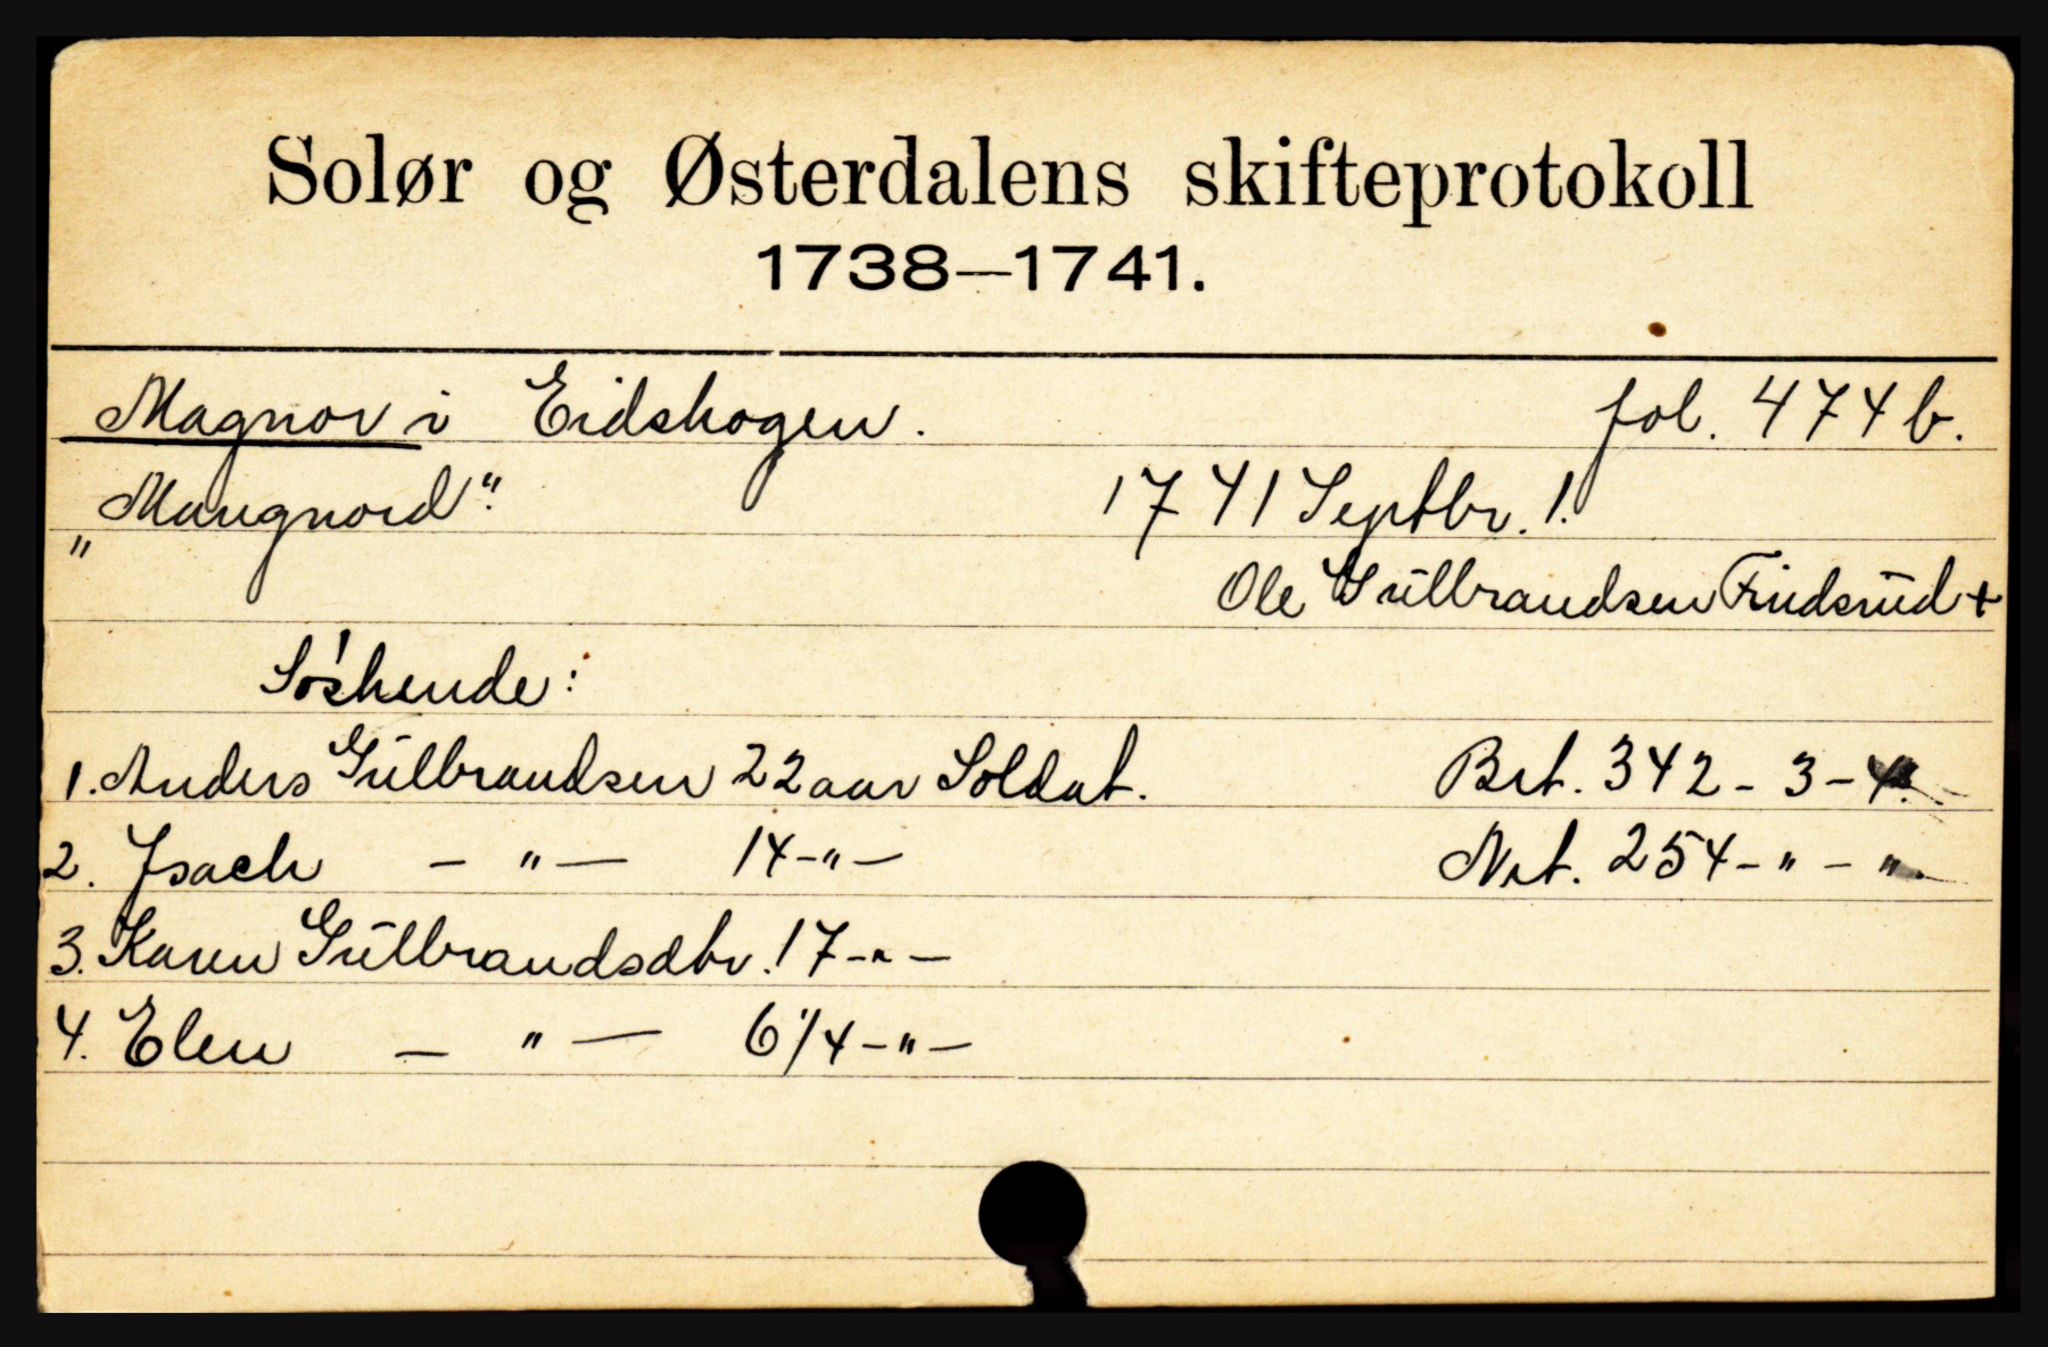 Solør og Østerdalens skifteprotokoll
1738—1741.
Magnor i Eidskogen. fol. 474 b.
„Maugnord". 1741 Septbr. 1.
Ole Gülbrandsen Findsrüd +
Søskende:
1. Anders Gülbrandsen 22 aar Soldat. Brt. 342 - 3 - 4.
2. Isach — " — 14 - " — Net. 254 - " - ".
3. Karen Gülbrandsdtr. 17 - " —
4. Elen — " — 6 1/4 - " —